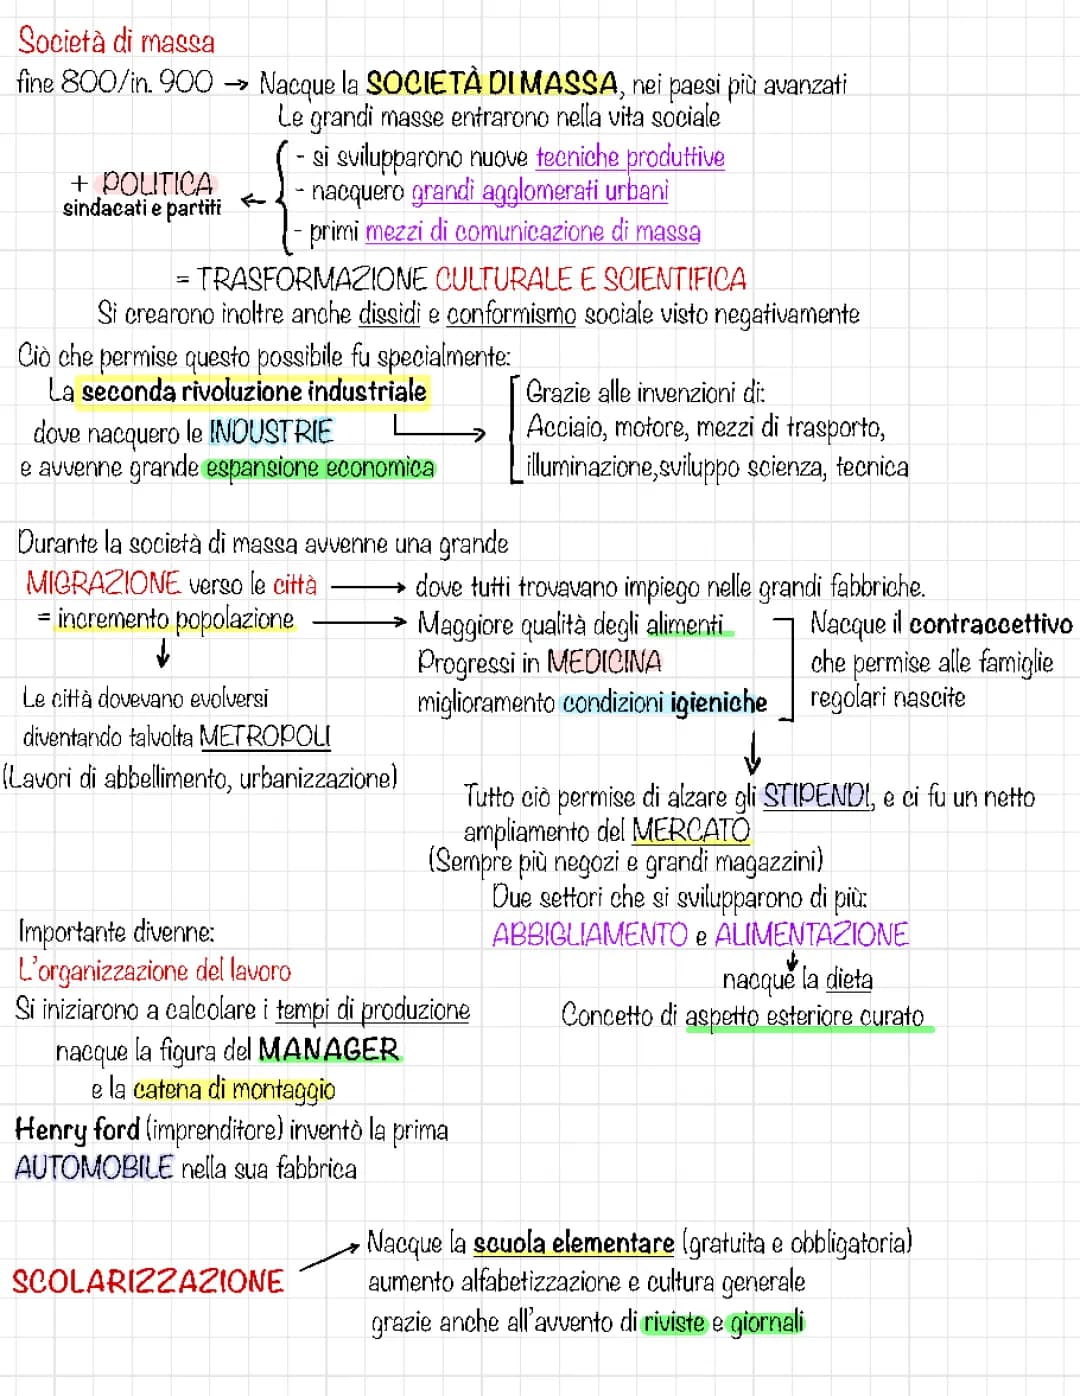 Società di massa
fine 800/in. 900 → Nacque la SOCIETÀ DI MASSA, nei paesi più avanzati
Le grandi masse entrarono nella vita sociale
- si svilupparono nuove tecniche produttive
- nacquero grandi agglomerati urbani
- primi mezzi di comunicazione di massa
+ POLITICA
sindacati e partiti
= TRASFORMAZIONE CULTURALE E SCIENTIFICA
Si crearono inoltre anche dissidi e conformismo sociale visto negativamente
Ciò che permise questo possibile fu specialmente:
La seconda rivoluzione industriale
dove nacquero le INDUSTRIE
e avvenne grande espansione economica
Grazie alle invenzioni di:
Acciaio, motore, mezzi di trasporto,
illuminazione,sviluppo scienza, tecnica
Durante la società di massa avvenne una grande
MIGRAZIONE verso le città → dove tutti trovavano impiego nelle grandi fabbriche.
= incremento popolazione → Maggiore qualità degli alimenti
Progressi in MEDICINA
miglioramento condizioni igieniche
Nacque il contraccettivo
che permise alle famiglie
regolari nascite
↓
Le città dovevano evolversi
diventando talvolta METROPOLI
(Lavori di abbellimento, urbanizzazione)
↓
Tutto ciò permise di alzare gli STIPENDI, e ci fu un netto
ampliamento del MERCATO
(Sempre più negozi e grandi magazzini)
Due settori che si svilupparono di più:
ABBIGLIAMENTO e ALIMENTAZIONE
↓
nacque la dieta
Concetto di aspetto esteriore curato
Importante divenne:
L'organizzazione del lavoro
Si iniziarono a calcolare i tempi di produzione
nacque la figura del MANAGER
e la catena di montaggio
Henry ford (imprenditore) inventò la prima
AUTOMOBILE nella sua fabbrica
SCOLARIZZAZIONE → Nacque la scuola elementare (gratuita e obbligatoria)
aumento alfabetizzazione e cultura generale
grazie anche all'avvento di riviste e giornali